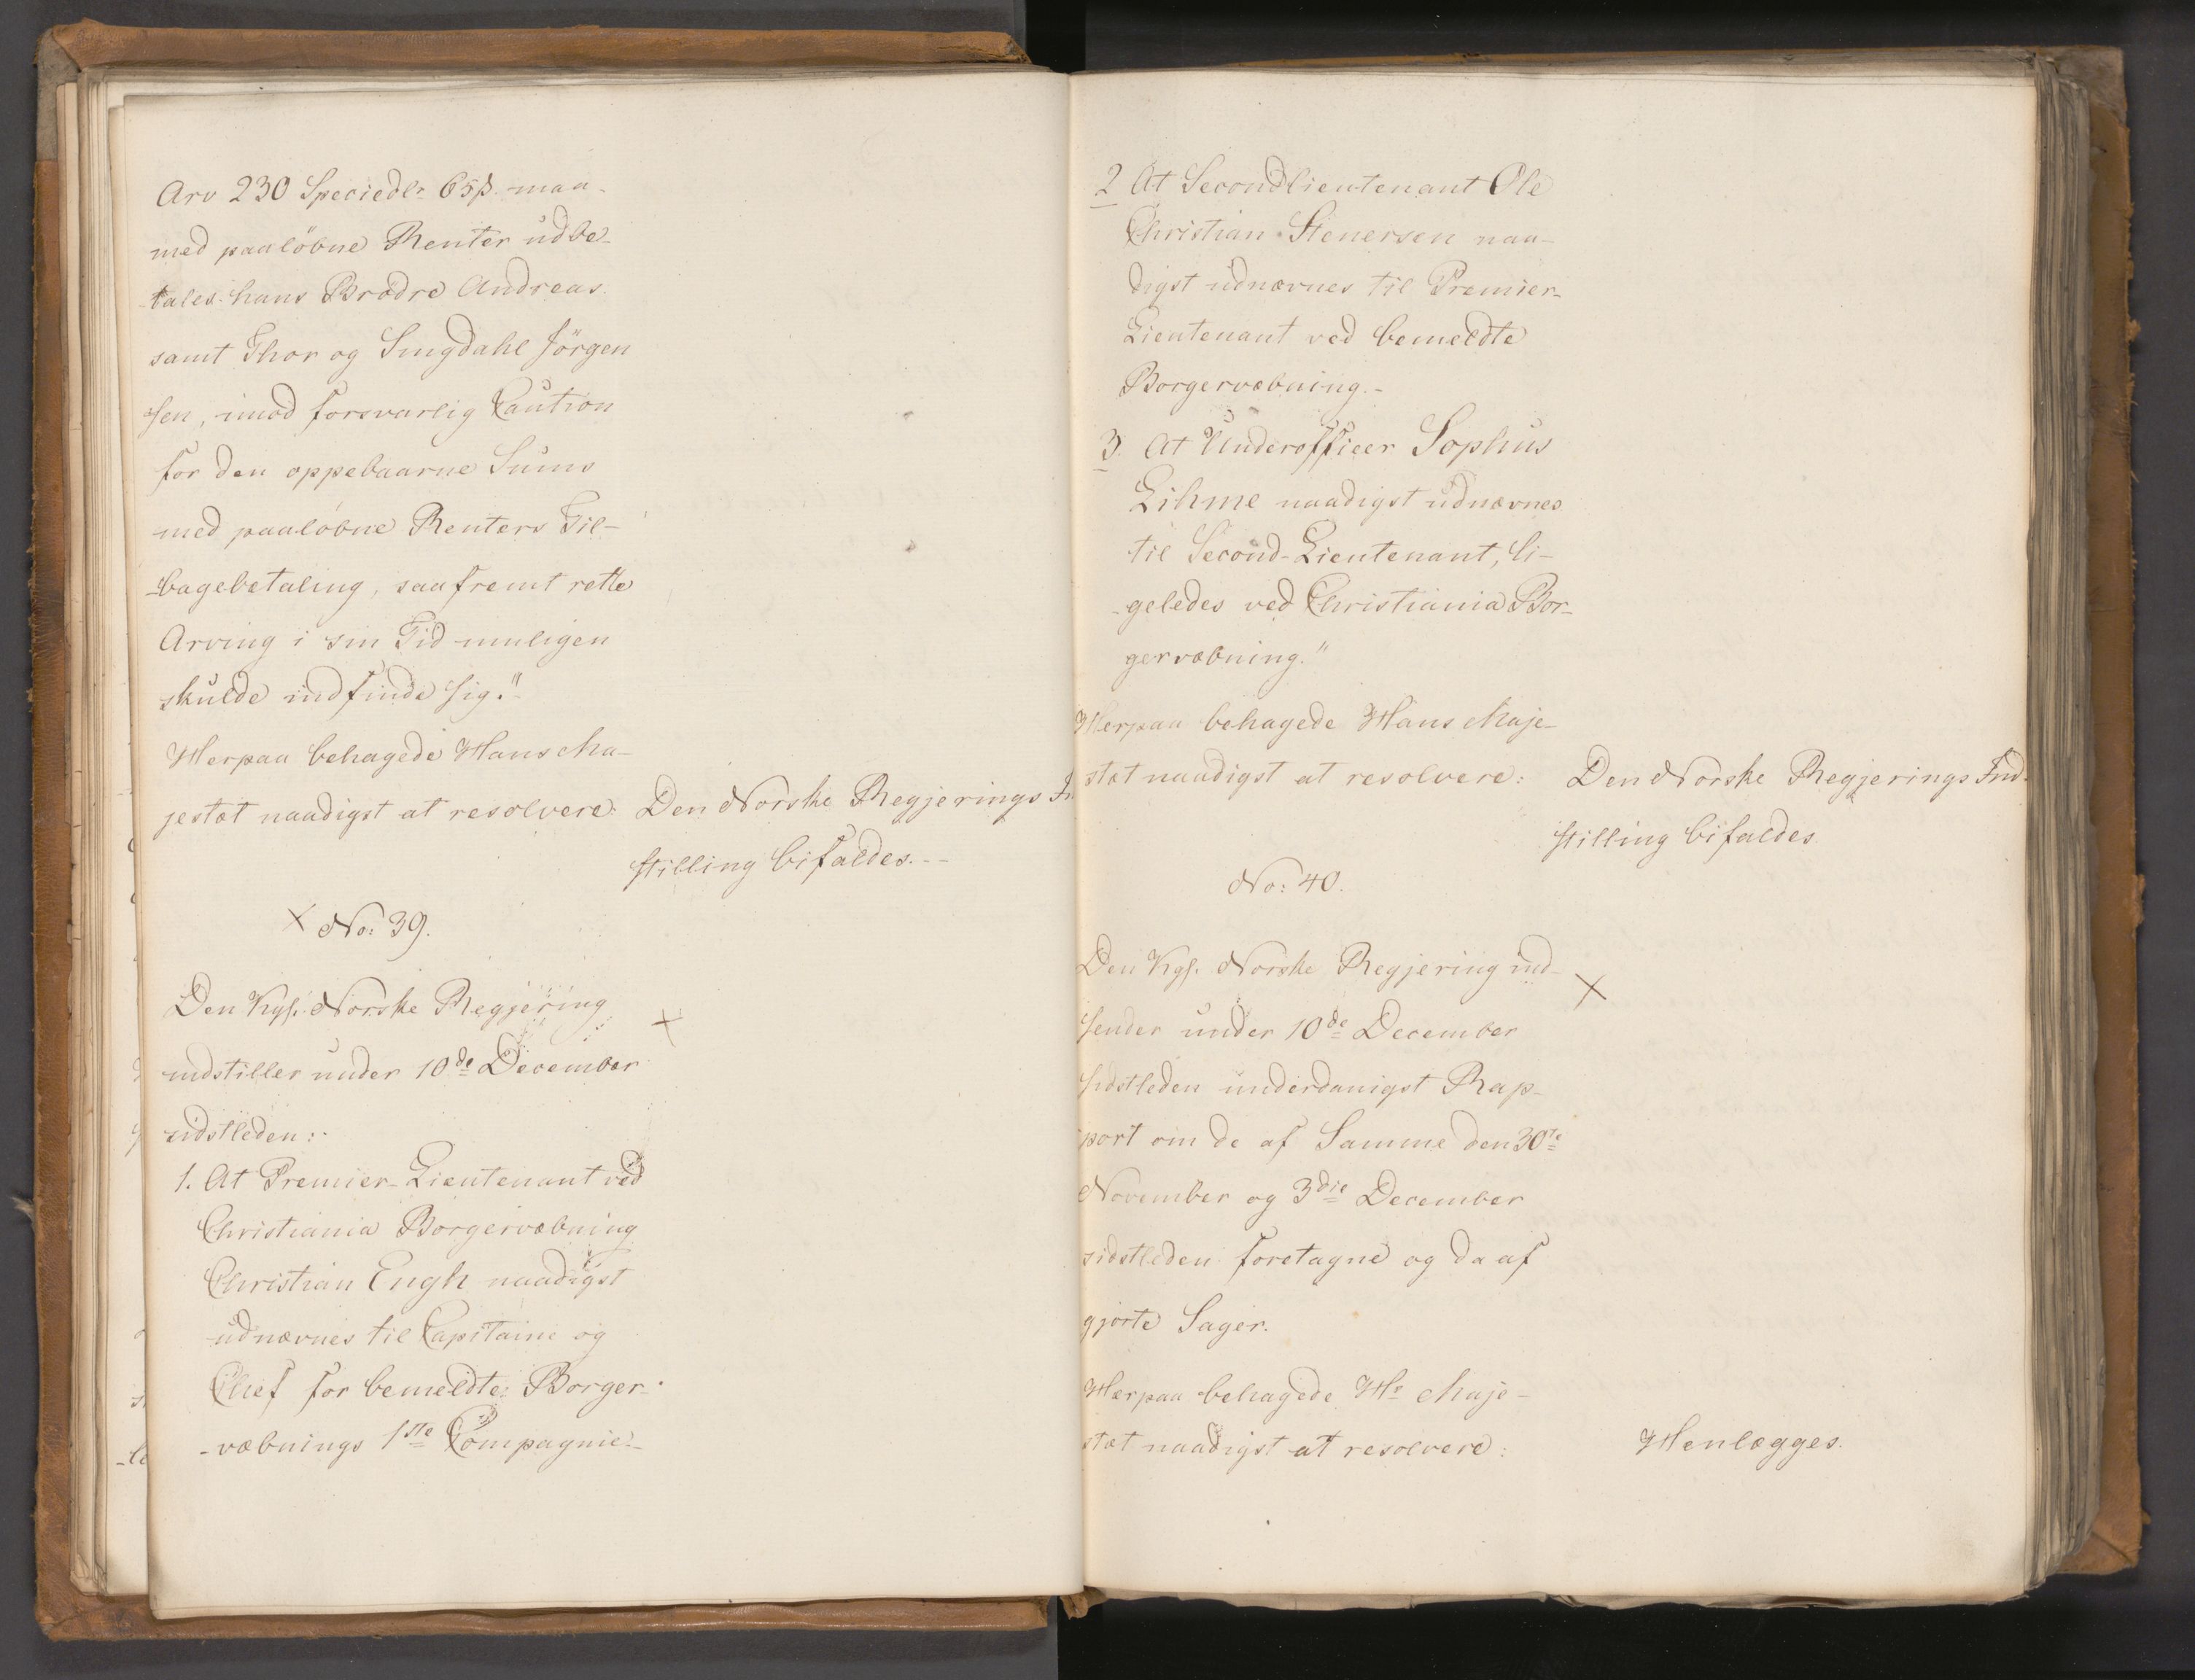 Arv 230 Speciedlr 65 ß. maa
med paaløbne Renter udbe-
tales hans Brødre Andreas
samt Thor og Smgdahl Jörgen
sen, imod forsvarlig Caution
for den oppebaarne Sums
med paaløbne Renters Til-
-bagebetaling, saafremt rette
Arving i sin Tid muligen
skulde indfinde sig."
Herpaa behagede Hans Ma-
jestæt naadigst at resolvere: Den Norske Regjerings In
stilling bifaldes.--
× No: 39.
Den Kgl. Norske Regjering ×
indstiller under 10de December
sidstleden:
1. At Premier-Lieutenant ved
Christiania Borgervæbning
Christian Engh naadigst
udnævnes til Capitaine og
Chef for bemeldte Borger-
-væbnings 1ste Compagnie.-
2 At Secondlieutenant Ole
Christian Stenersen naa-
digst udnævnes til Premier-
Lieutenant ved bemeldte
Borgervæbning.-
3. At Underofficer Sophus
Lihme naadigst udnævnes
til Second-Lieutenant, li-
-geledes ved Christiania Bor-
gervæbning."
Herpaa behagede Hans Maje-
stæt naadigst at resolvere: Den Norske Regjerings Ind-
stilling bifaldes
No: 40.
Den Kgl. Norske Regjering ind- ×
sender under 10de December
sidstleden underdanigst Rap-
port om de af Samme den 30te
November og 3die December
sidstleden foretagne og da af
gjorte Sager.
Herpaa behagede Hs Maje-
stæt naadigst at resolvere: Henlægges.